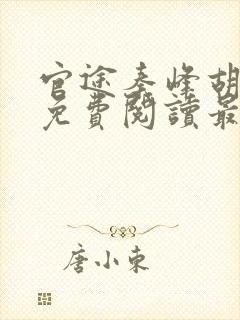 官途秦峰胡
免費閱讀最
唐小東